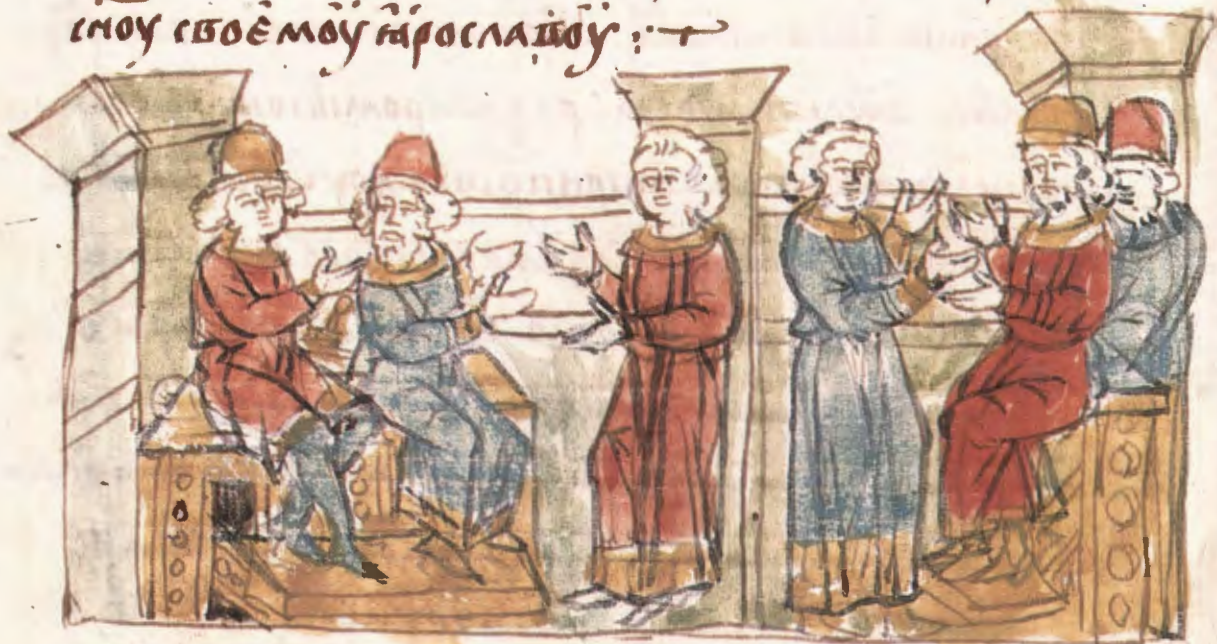 сн҃оу своємоу ꙗрославоу :·